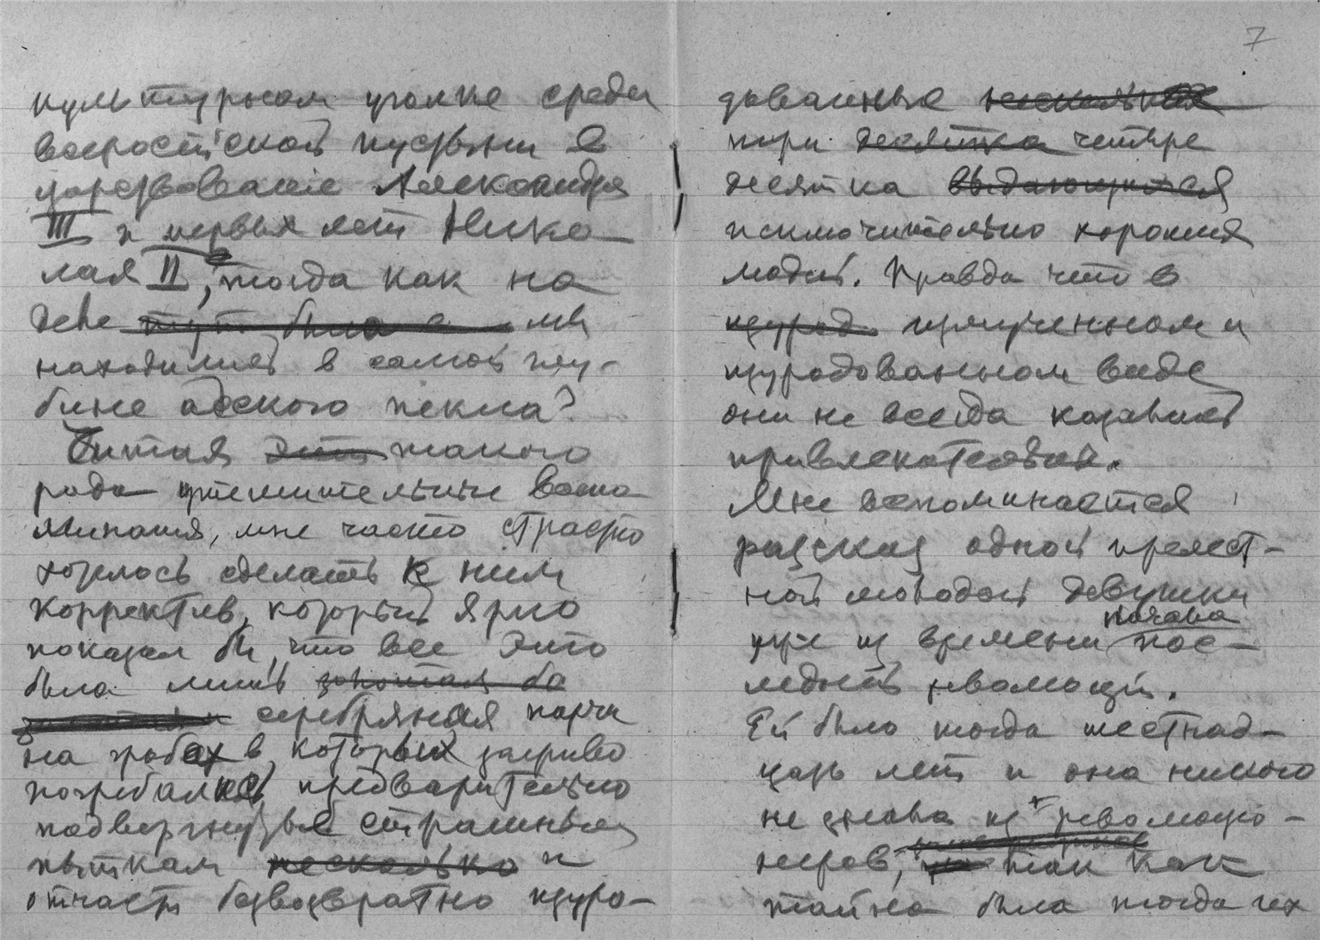 культурном уголке среди
всероссiйской пустыни в
царствованiе Александра
III и первых лет Нико-
лая II, тогда как на
деле тут была а мы
находились в самой глу-
бине адского пекла?
Читая эти такого
рода утешительные воспо
минания, мне часто страстно
хотелось сделать к ним
корректив, который ярко
показал бы, что все это
была лишь золотая
серебряная парча
на гробах в которых заживо
погребались предварительно
подвергнутые страшным
пыткам несколько и
отчасти безвозвратно изуро-
7
дованные несколько
пары десятка четыре
десятка выдающихся
исключительно хороших
людей. Правда что в
изурод измученном и
изуродованном виде
они не всегда казались
привлекательными.
Мне вспоминается
рассказ одной прелест-
ной молодой девушки
начала
уже из времени пос-
ледней революцiи.
Ей было тогда шестнад-
цать лет и она никого
не знала из революцiо-
неров, так как
тайна была тогда их